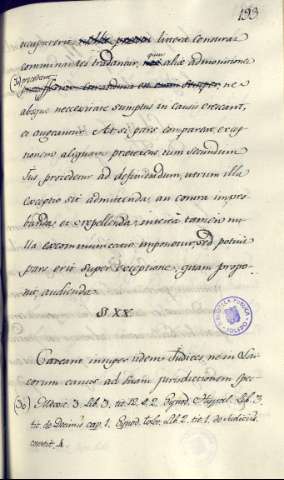 193
occupaverit literæ censuræ
comminantes tradantur, aliæ admonitiones
(30) ne
absque necessitate sumptus in causis crescant,
et augeantur. At si pars compareat, excep
tionem aliquam proiiciens, tum secundum
Jus procedetur ad definiendum, utrum illa
exceptio sit admittenda, an contra impro
banda, et expellenda, interea tamen nu
lla excommunicatio imponetur, sed potius
pars erit super exceptione, quam propo
nit, audienda.
§ XX.
Caveant insuper iidem Judices, ne in Lai
corum causis ad suam jurisdictionem spec
(30) lib. 3. tit. 12. c. 2. Synod. lib. 3.
tit. de Decimis cap. 1. Synod. tolet. lib. 2. tit. 1. de Judiciis
constit. 4.
TOLEDO